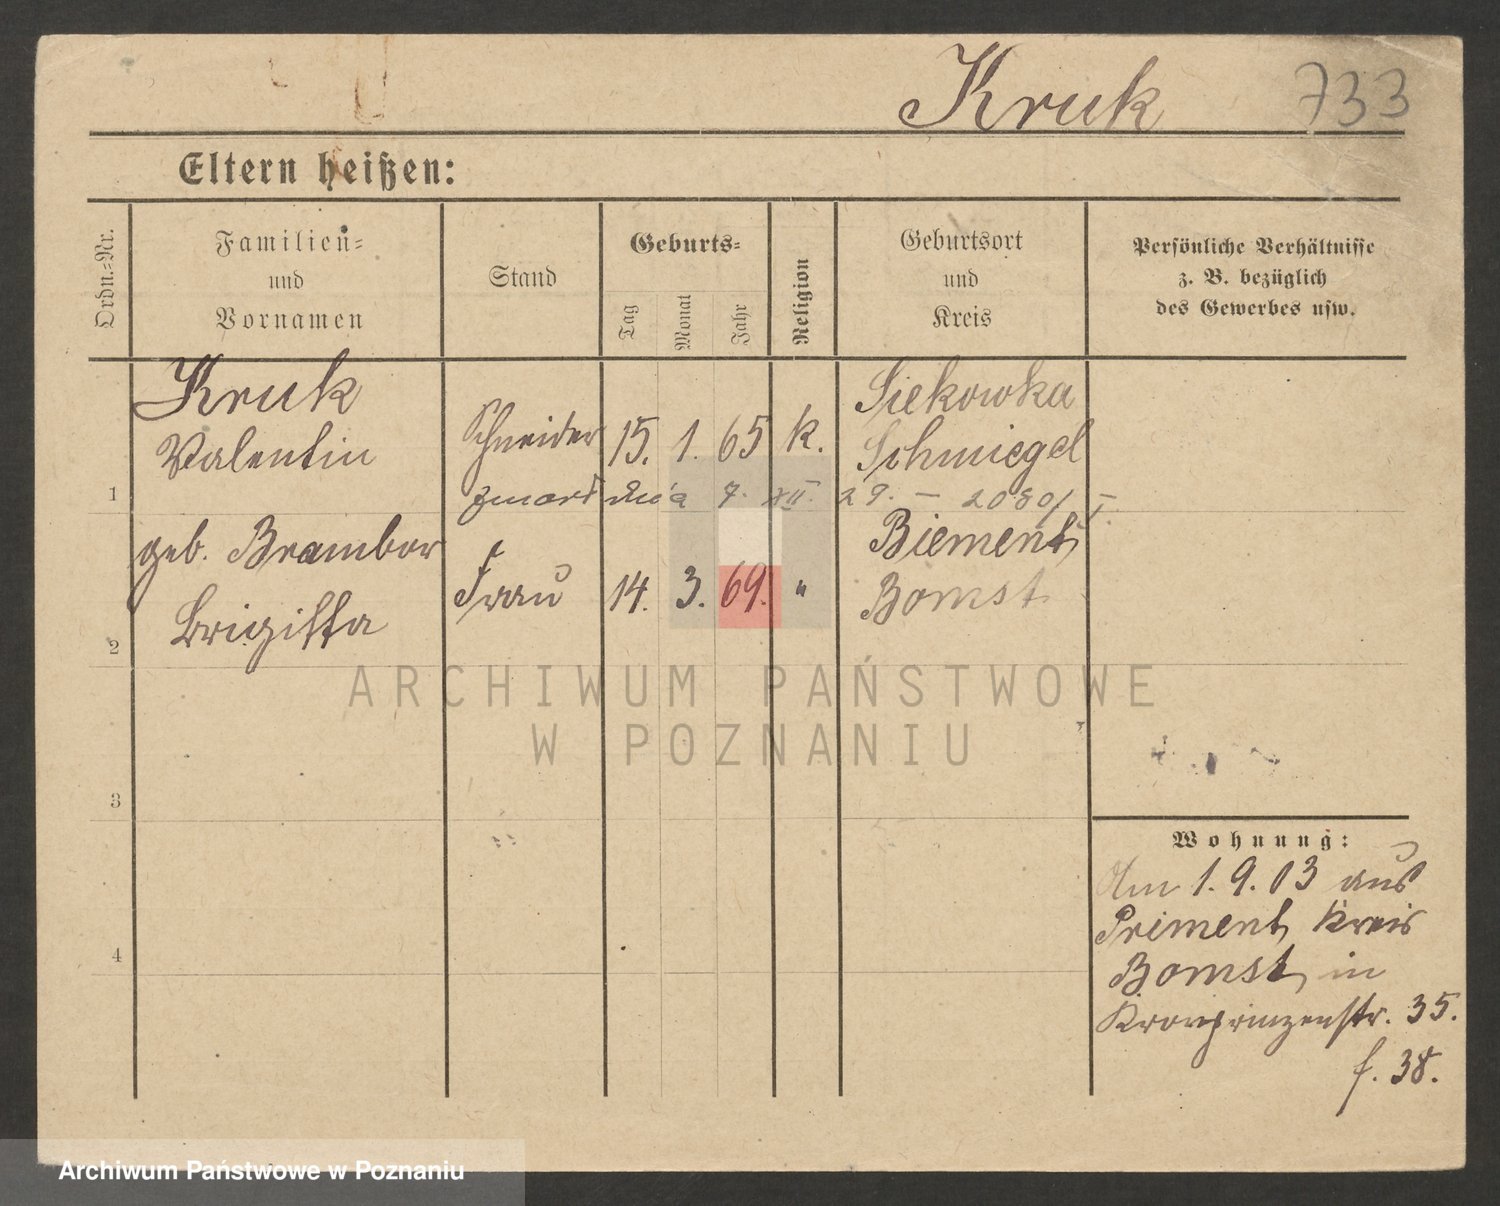 Kruk 733
Eltern heißen:
Ordn.-Nr.
Familien-
und
Vornamen
Stand
Geburts-
Tag
Monat
Jahr
Religion
Geburtsort
und
Kreis
Persönliche Verhältnisse
z. B. bezüglich
des Gewerbes usw.
1
Kruk
Valentin
Schneider
15. 1. 65
k.
Siekowka
Schmiegel
zmarł dnia 7. XII. 29. –
2
geb. Brambor
Brigitta
Frau
14. 3. 69.
"
Biement,
Bomst
3
4
Wohnung:
Am 1.9.03 aus
Priment, Kreis
Bomst, in
Kronprinzenstr. 35.
f. 38.
ARCHIWUM PAŃSTWOWE
W POZNANIU
Archiwum Państwowe w Poznaniu